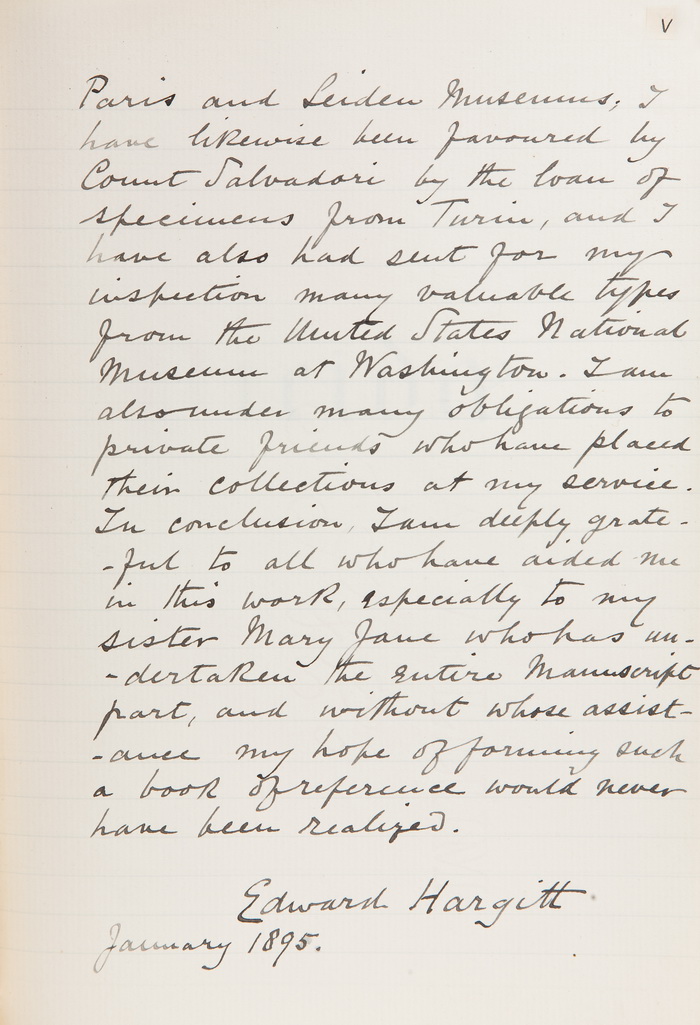 V
Paris and Leiden Museums; I
have likewise been favoured by
Count Salvadori by the loan of
specimens from Turin, and I
have also had sent for my
inspection many valuable types
from the United States National
Museum at Washington. I am
also under many obligations to
private friends who have placed
their collections at my service.
In conclusion, I am deeply grate-
-ful to all who have aided me
in this work, especially to my
sister Mary Jane who has un-
-dertaken the entire Manuscript
part, and without whose assist-
-ance my hope of forming such
a book of reference would never
have been realized.
Edward Hargitt
January 1895.